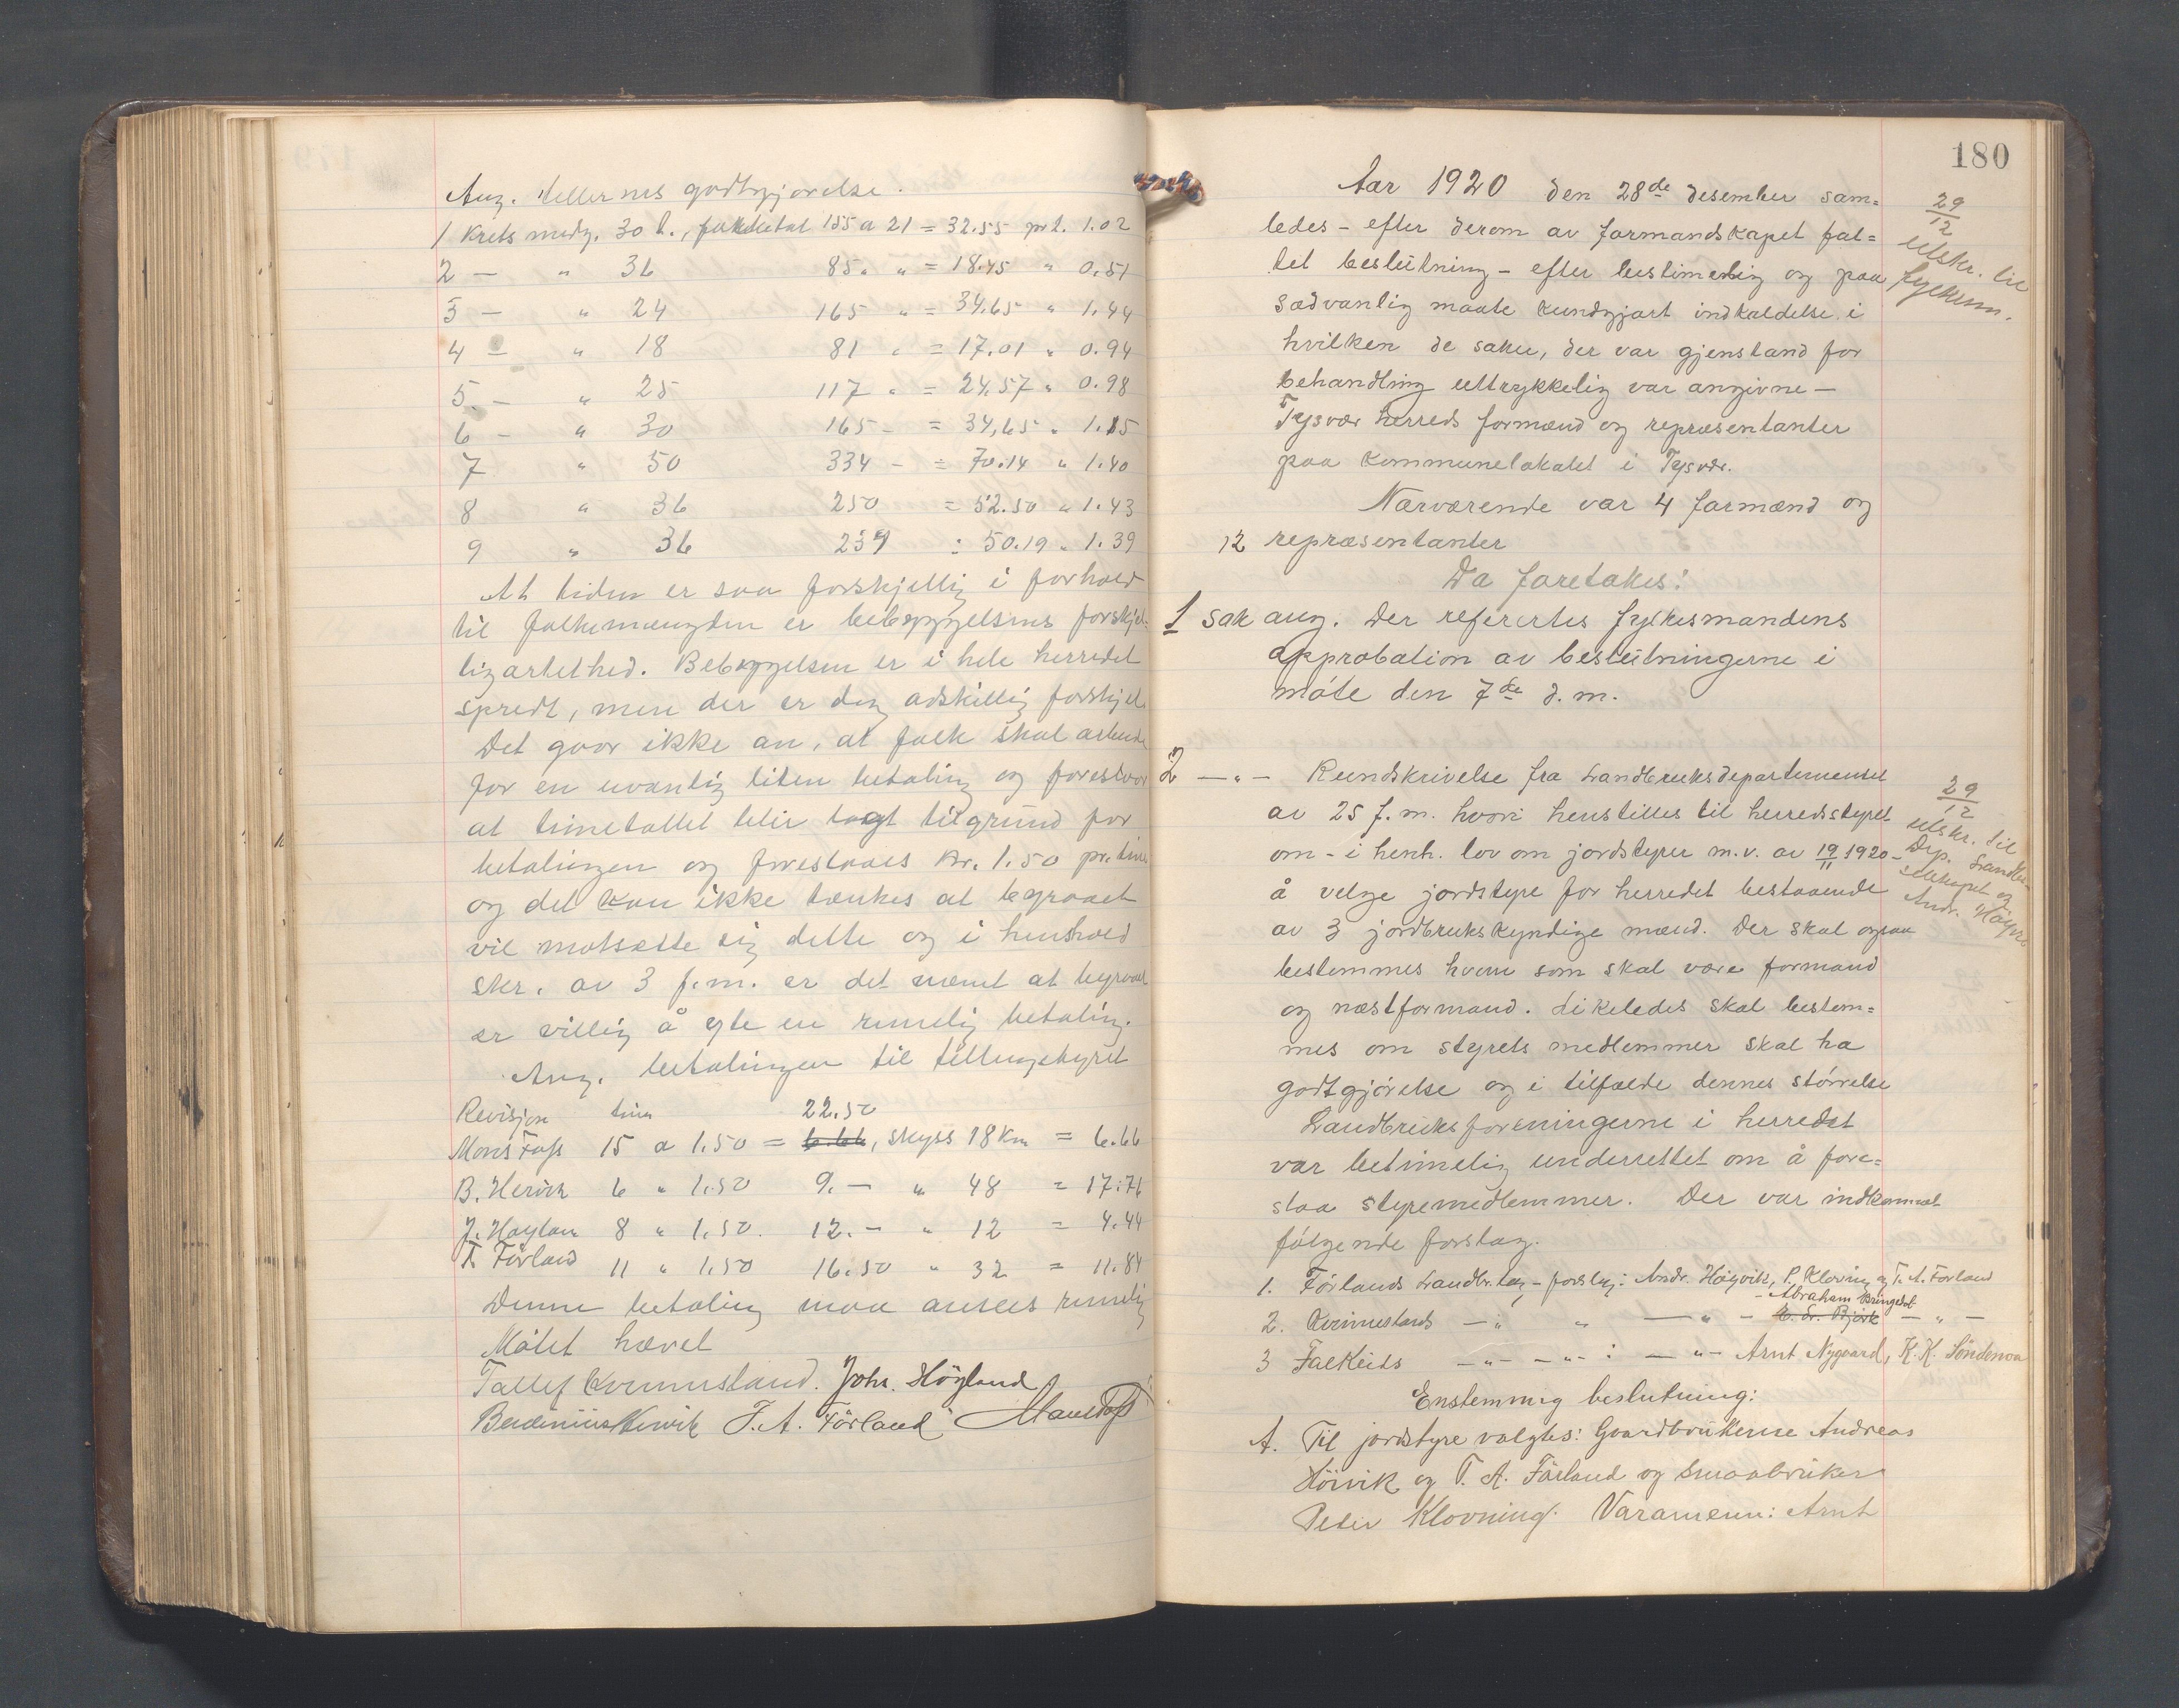 Ang. tellernes godtgjørelse.
1 Krets medg. 30 t., folketal 155 a 21 = 32.55 pr t. 1.02
2 — " 36 85 " " = 18.45 " 0.51
3 — " 24 165 " = 34.65 " 1.44
4 — " 18 81 " = 17.01 " 0.94
5. — " 25 117 " = 24.57 " 0.98
6 — " 30 165 - = 34,65 " 1.15
7 " 50 334 - = 70.14 " 1.40
8 " 36 250 = 52.50 " 1.43
9 " 36 239 = 50.19 " 1.39
At tiden er saa forskjellig i forhold
til folkemængden er bebyggelsens forskjel-
ligartethed. Bebyggelsen er i hele herredet
spredt, men der er dog adskillig forskjel.
Det gaar ikke an, at folk skal arbeide
for en uvanlig liten betaling og forestaar
at timetallet blir lagt til grund for
betalingen og forestaaes kr. 1.50 pr. time
og det kan ikke tænkes at byraaet
vil motsætte sig dette og i henhold
skr. av 3 f.m. er det nævnt at byraaet
er villig å yte en rimelig betaling.
Ang. betalingen til tellingsstyret
Revisjon timer 22.50
Mons Foss 15 a 1.50 = 6.66, skyss 18 km = 6.66
B. Hervik 6 " 1.50 9.— " 48 = 17.76
J. Høyland 8 " 1.50. 12.— " 12 = 4.44
T. Førland 11 " 1.50 16.50 " 32 = 11.84
Denne betaling maa ansees rimelig
Møtet hævet
Tallef Kvinnesland. Johs. Höyland
Berdinius Hervik T. A. Förland Mons Foss
180
Aar 1920 den 28de desember sam=
ledes - efter derom av formandskapet fat=
tet beslutning - efter bestimelig og paa
sædvanlig maate kundgjort indkaldelse i
hvilken de saker, der var gjenstand for
behandling uttrykkelig var angivne —
Tysvær herreds formænd og repræsentanter
paa kommunelokalet i Tysvær.
29/12
Utskr. til
fylkesm.
Nærværende var 4 formænd og
12 repræsentanter
Da foretokes:
1 Sak ang. Der refertes fylkesmandens
approbation av beslutningerne i
møte den 7de d.m.
2 — " — Rundskrivelse fra Landbruksdepartementet
av 25 f.m. hvori henstilles til herredsstyret
om - i henh. lov om jordstyrer m.v. av 19/11 1920 -
å velge jordstyre for herredet bestaaende
av 3 jordbrukskyndige mænd. Der skal ogsaa
bestemmes hvem som skal være formand
og næstformand. Likeledes skal bestem=
mes om styrets medlemmer skal ha
godtgjørelse og i tilfælde dennes størrelse
29/12
Utskr. til
Dep. Landbr.
selskapet og
Andr. Høyvik
Landbruksforeningerne i herredet
var betimelig underrettet om å fore=
slaa styremedlemmer. Der var indkommet
følgende forslag.
1. Førlands Landbr. lag - forslag: Andr. Høyvik, P. Kloving og T. A. Førland
- Abraham Bringedal
2. Kvinneslands — " — " — " — Bjørk — " —
3 Falkeids — " — — " — : — " — Arnt Nygaard, K. K. Söndenaa
Enstemmig beslutning:
A. Til jordstyre valgtes: Gaardbrukerne Andreas
Höivik og T. A. Førland og Smaabruker
Peder Klovning. Varamenn: Arnt